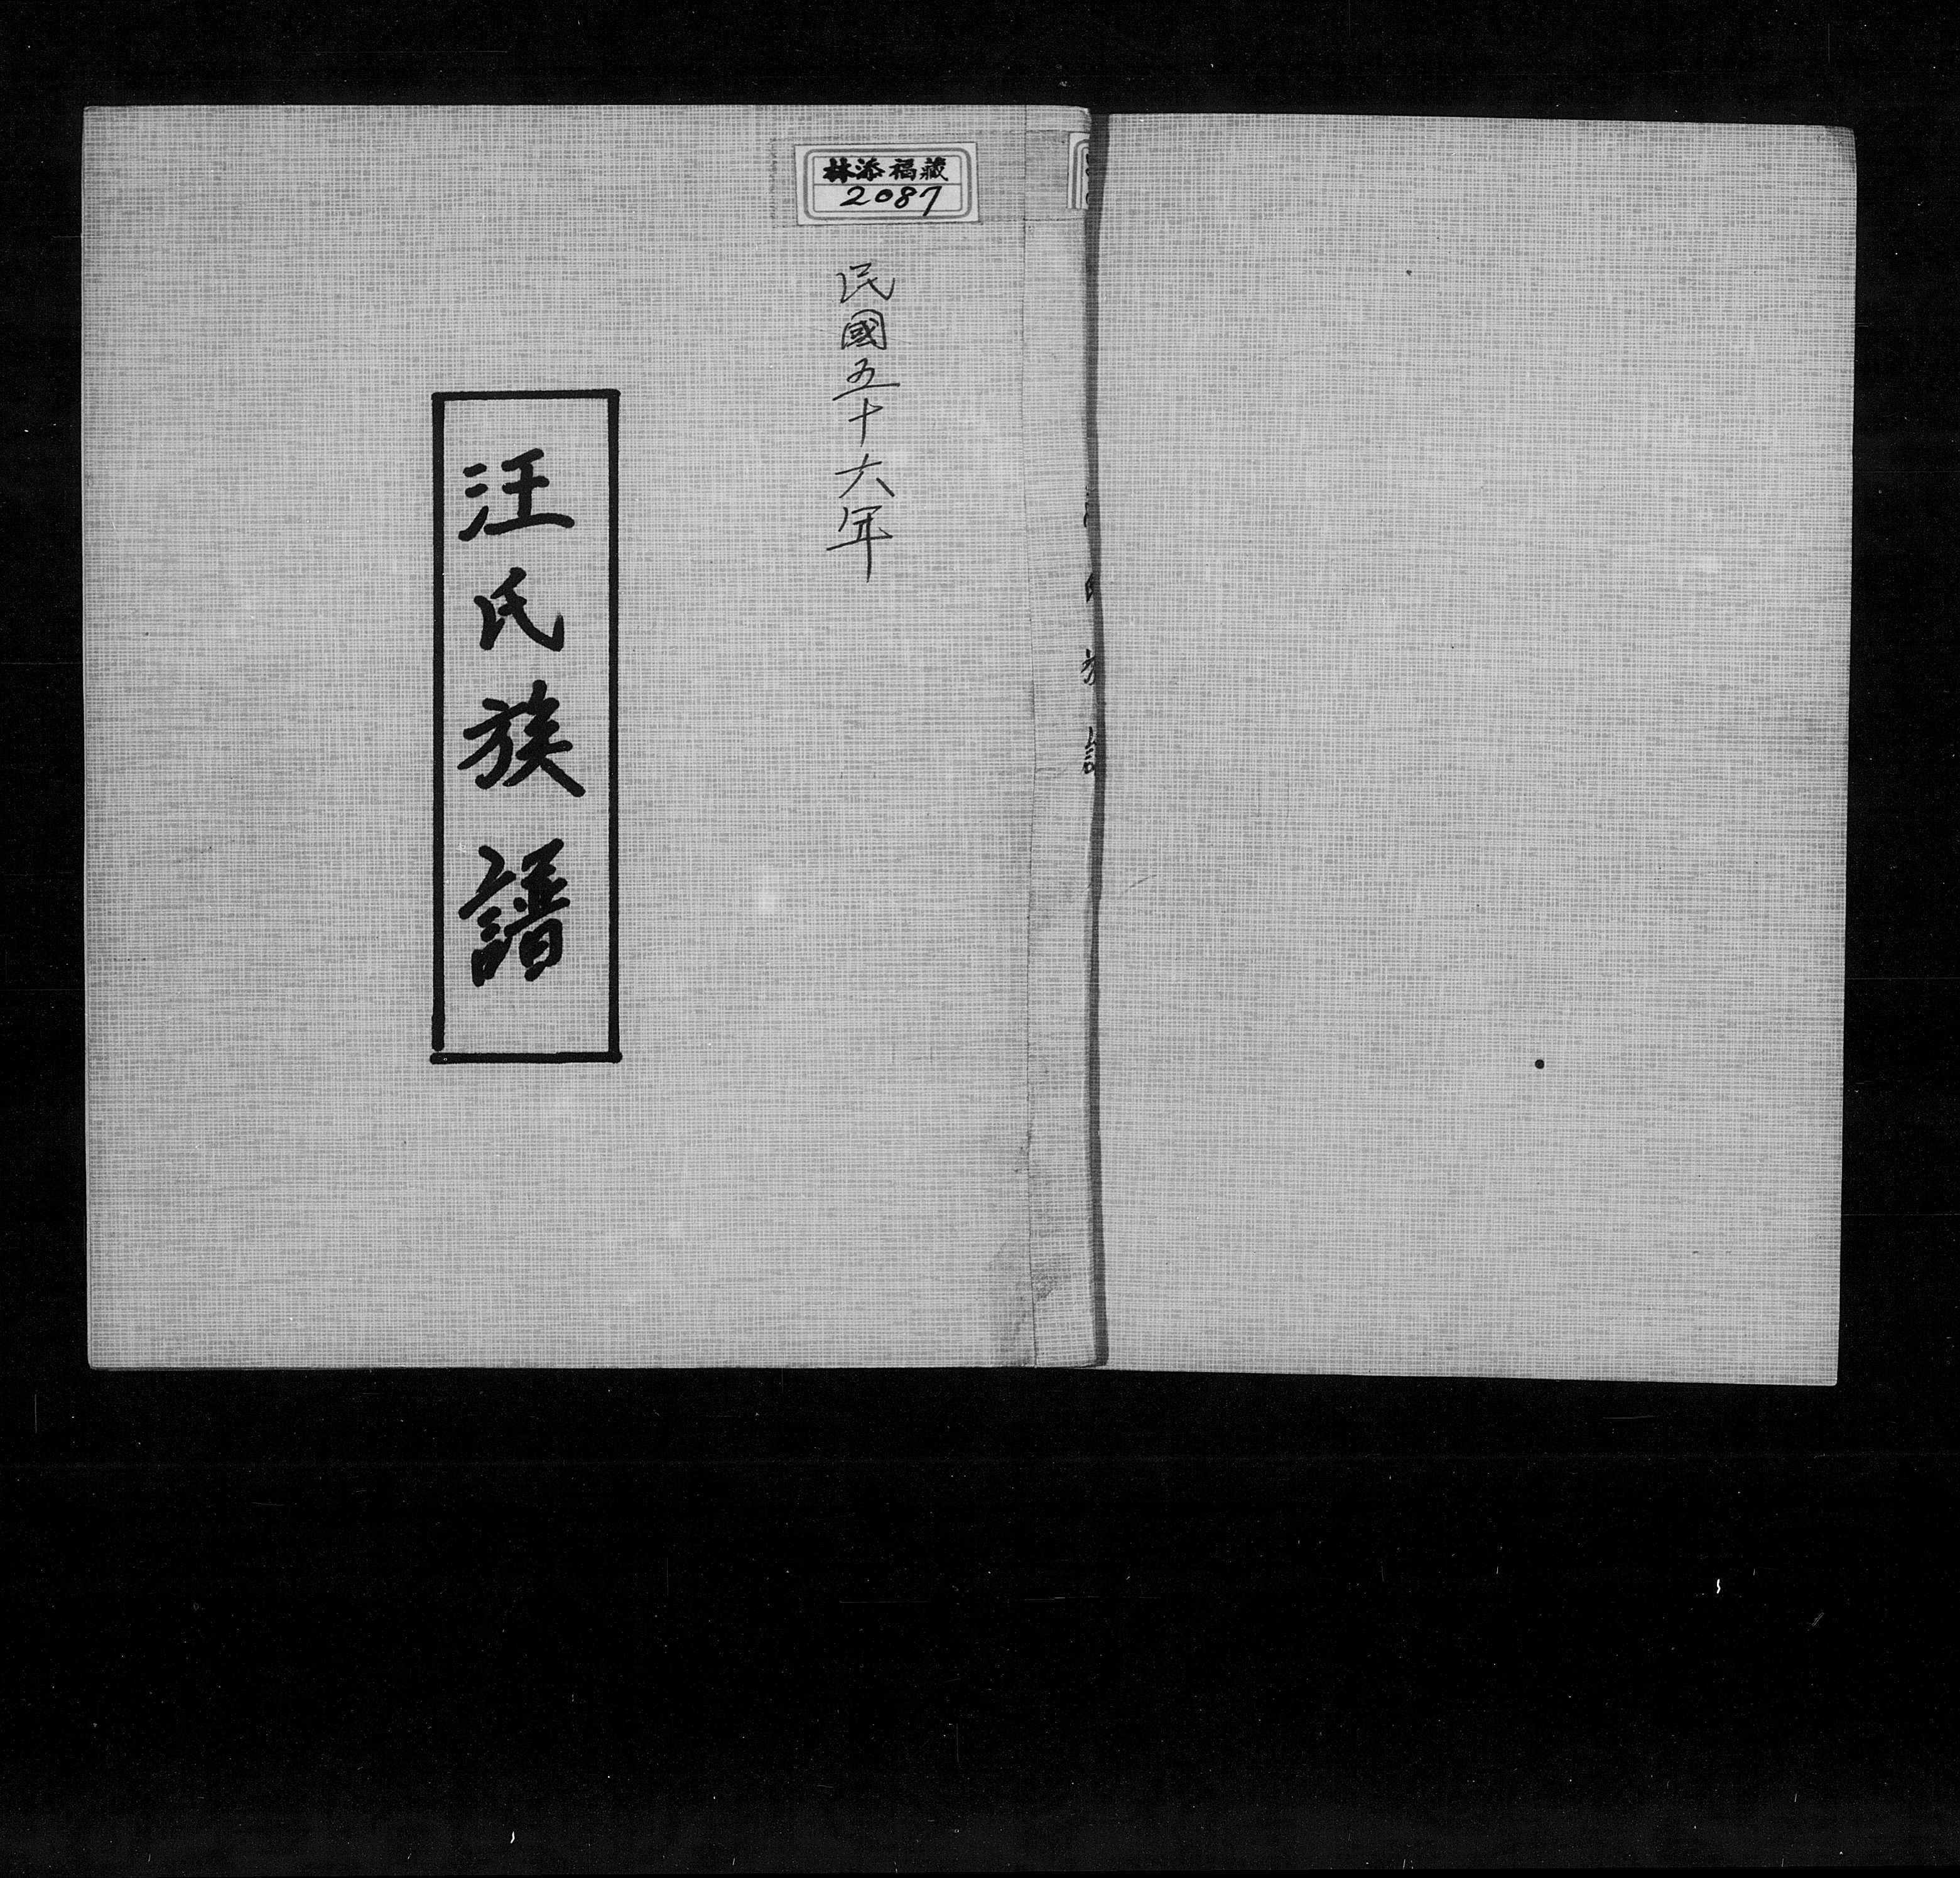 林添福藏
2087
民國五十六年
汪氏族譜